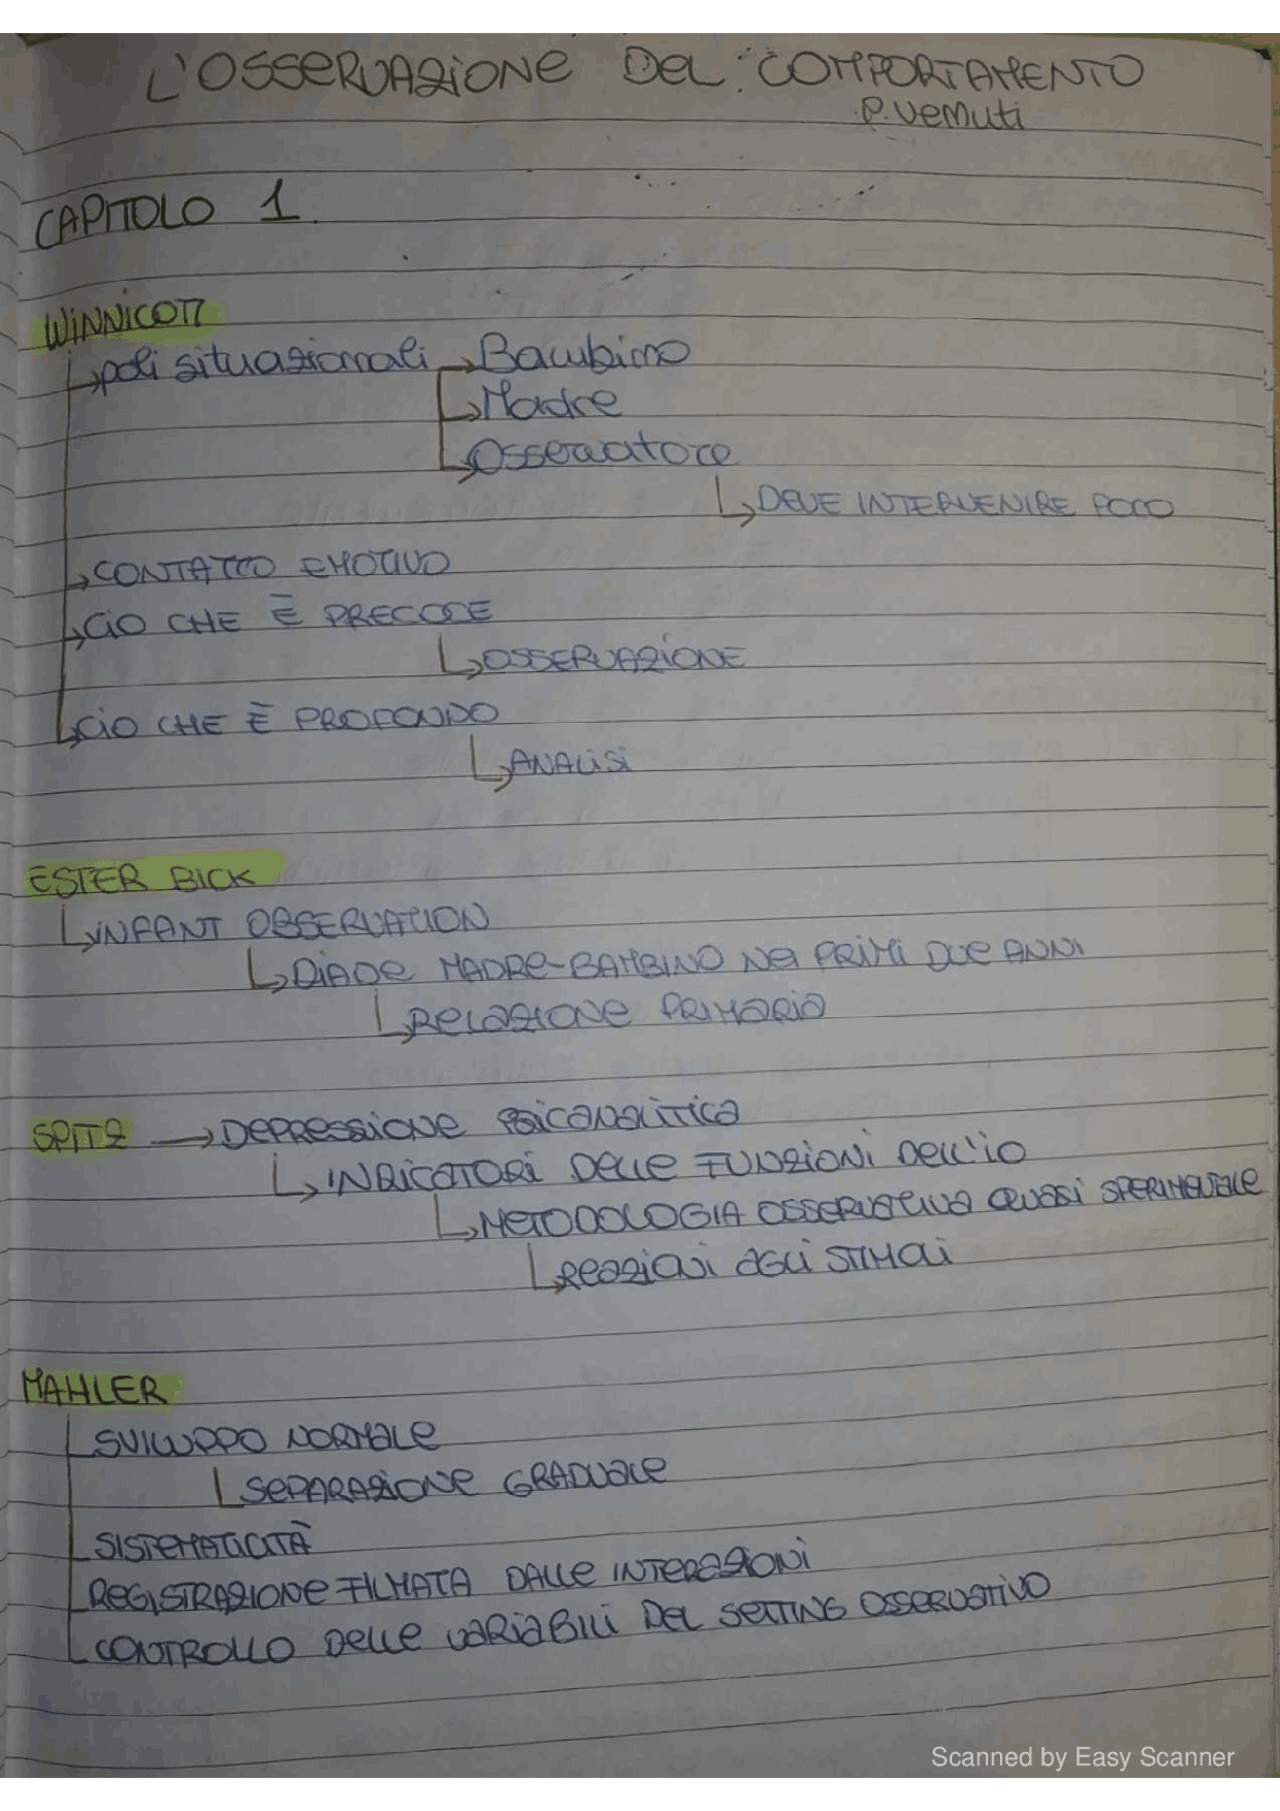 L'OSSERVAZIONE DEL COMPORTAMENTO
P. Vemuti
CAPITOLO 1
WINNICOTT
poli situazionali → Bambino
Madre
Osservatore
DEVE INTERVENIRE POCO
CONTATTO EMOTIVO
CIO CHE È PRECOCE
OSSERVAZIONE
CIO CHE È PROFONDO
ANALISI
ESTER BICK
INFANT OBSERVATION
DIADE MADRE-BAMBINO NEI PRIMI DUE ANNI
RELAZIONE PRIMARIA
SPITZ → DEPRESSIONE PSICANALITICA
INDICATORI DELLE FUNZIONI DELL'IO
METODOLOGIA OSSERVATIVA QUASI SPERIMENTALE
REAZIONI AGLI STIMOLI
MAHLER
SVILUPPO NORMALE
SEPARAZIONE GRADUALE
SISTEMATICITÀ
REGISTRAZIONE FILMATA DALLE INTERAZIONI
CONTROLLO DELLE VARIABILI DEL SETTING OSSERVATIVO
Scanned by Easy Scanner